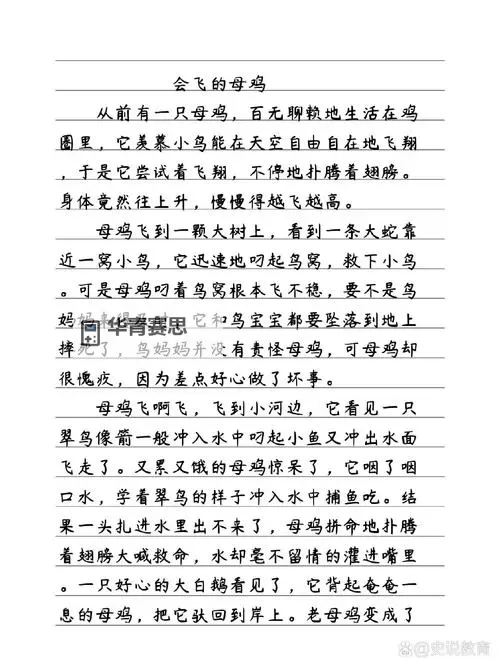 会飞的母鸡
从前有一只母鸡，百无聊赖地生活在鸡
圈里，它羡慕小鸟能在天空自由自在地飞翔
，于是它尝试着飞翔，不停地扑腾着翅膀。
身体竟然往上升，慢慢得越飞越高。
母鸡飞到一颗大树上，看到一条大蛇靠
近一窝小鸟，它迅速地叼起鸟窝，救下小鸟
。可是母鸡叼着鸟窝根本飞不稳，要不是鸟
妈妈来得及时，它和鸟宝宝都要坠落到地上
华青赛思
摔死了，鸟妈妈并没有责怪母鸡，可母鸡却
很愧疚，因为差点好心做了坏事。
母鸡飞啊飞，飞到小河边，它看见一只
翠鸟像箭一般冲入水中叼起小鱼又冲出水面
飞走了。又累又饿的母鸡惊呆了，它咽了咽
口水，学着翠鸟的样子冲入水中捕鱼吃。结
果一头扎进水里出不来了，母鸡拼命地扑腾
着翅膀大喊救命，水却毫不留情的灌进嘴里
。一只好心的大白鹅看见了，它背起奄奄一
息的母鸡，把它驮回到岸上。老母鸡变成了
史说教育